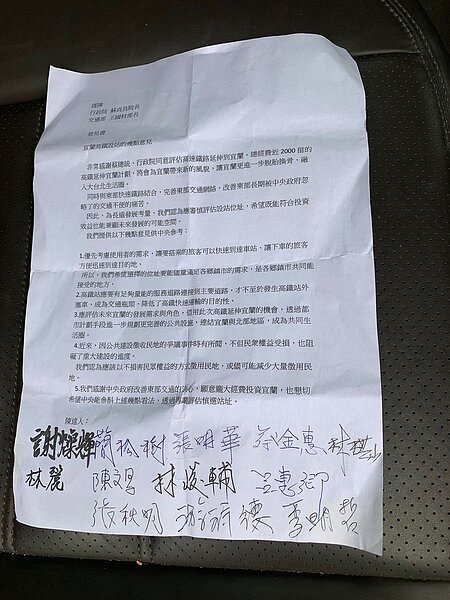 建陳
行政院 蘇貞昌院長
交通部 王國材部長
意見書
宜蘭高鐵設站的幾點意見
非常感謝蔡總統、行政院同意評估高速鐵路延伸到宜蘭，總經費近 2000 億的
高鐵延伸宜蘭計劃，將會為宜蘭帶來新的風貌，讓宜蘭更進一步脫胎換骨、融
入大台北生活圈。
同時與東部快速鐵路結合，完善東部交通網絡，改善東部長期被中央政府忽
略了的交通不便的痛苦。
因此，為長遠發展考量，我們認為應審慎評估設站位址，希望既能符合投資
效益也能兼顧未來發展的可能空間。
我們提供以下幾點意見供中央參考：
1.優先考慮使用者的需求，讓要搭乘的旅客可以快速到達車站、讓下車的旅客
方便迅速到達目的地。
所以，我們希望選擇的位址要能儘量滿足各鄉鎮市的需求，是各鄉鎮市共同能
接受的地方。
2.高鐵站應要有足夠量能的服務道路連接到主要道路，才不至於發生高鐵站外
塞車、成為交通瓶頸，降低了高鐵快速運輸的目的性。
3.應評估未來宜蘭的發展需求與角色，借用此次高鐵延伸宜蘭的機會，透過都
市計劃手段進一步規劃更完善的公共設施，連結宜蘭與北部地區，成為共同生
活圈。
4.近來，因公共建設徵收民地的爭議事件時有所聞，不但民眾權益受損，也阻
礙了重大建設的進度。
我們認為應該以不損害民眾權益的方式徵用民地，或儘可能減少大量徵用民
地。
5.我們感謝中央政府改善東部交通的決心，願意龐大經費投資宜蘭，也懇切
希望中央能參酌上述幾點看法，透過專業評估慎選站址。
陳述人：
謝燦輝 簡松樹 張明華 蔡金惠
林麗 陳文昌 林峻輔 呂惠卿
張秋明 游 德 李明哲